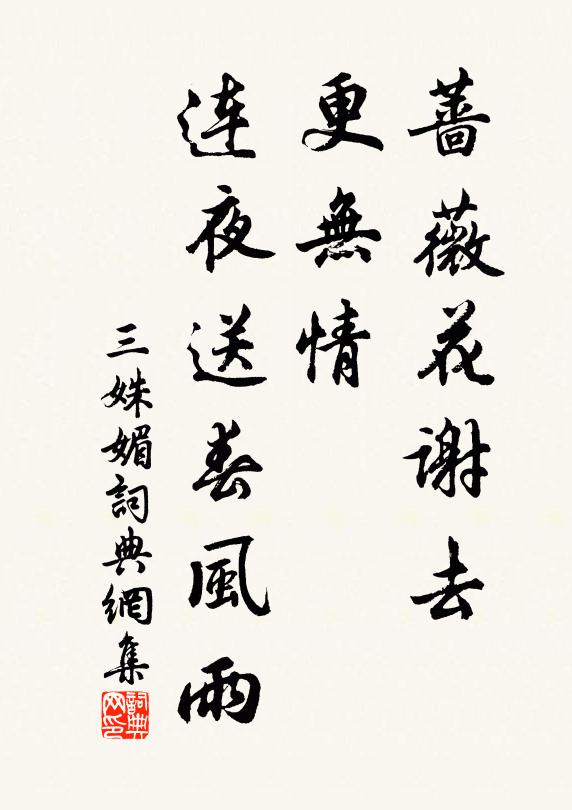 薔薇花谢去
更無情
连夜送春風雨
三姝媚詞典網集
詞典网印